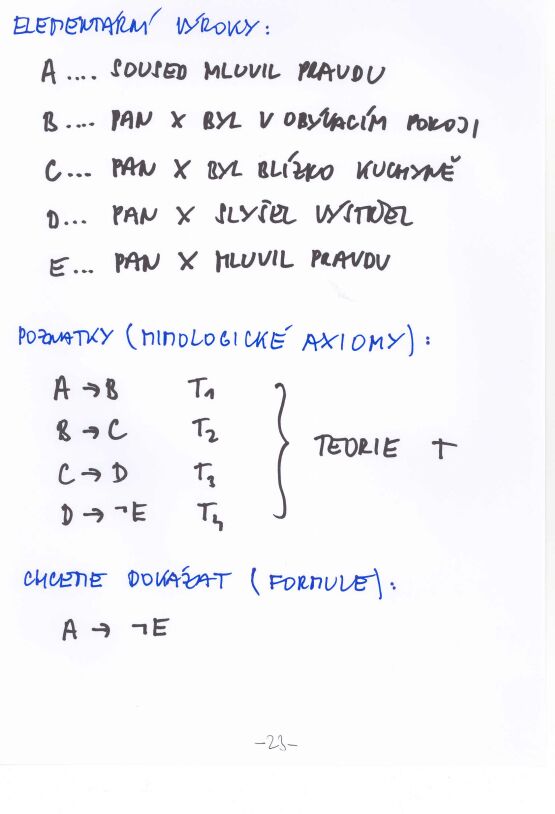 ELEMENTÁRNÍ VÝROKY:
A .... SOUSED MLUVIL PRAVDU
B .... PAN X BYL V OBÝVACÍM POKOJI
C... PAN X BYL BLÍZKO KUCHYNĚ
D... PAN X SLYŠEL VÝSTŘEL
E... PAN X MLUVIL PRAVDU
POZNATKY (MIMOLOGICKÉ AXIOMY):
A → B T1
B → C T2
C → D T3
D → ¬E T4
TEORIE T
CHCEME DOKÁZAT (FORMULE):
A → ¬E
-23-